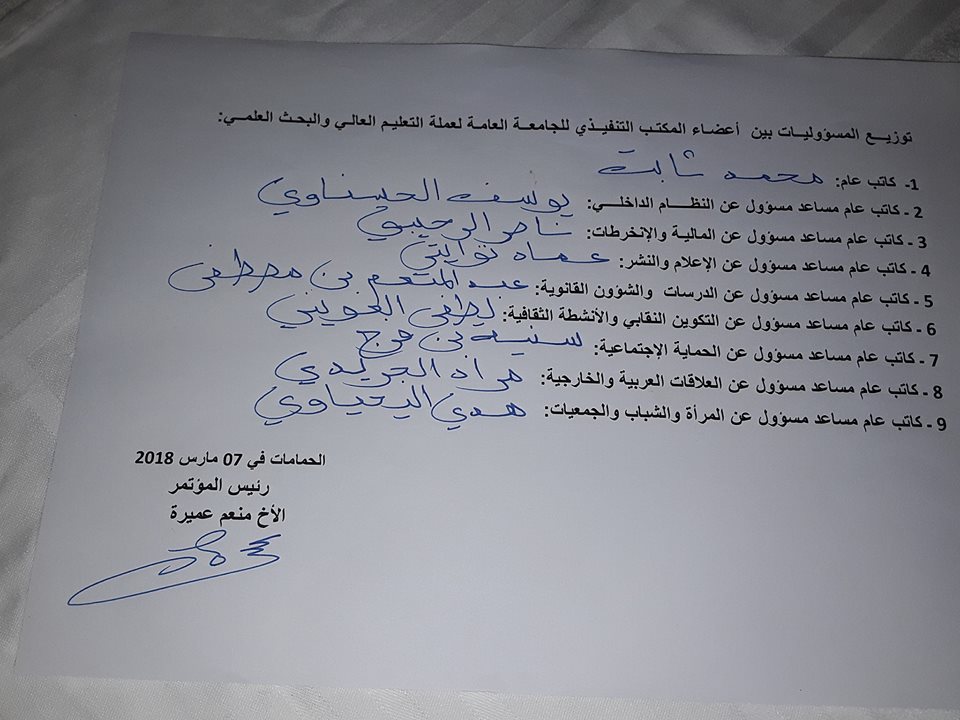 توزيـع المسؤوليـات بين أعضـاء المكتـب التنفيـذي للجامعـة العامـة لعملة التعليـم العالـي والبحـث العلمـي:
1- كاتب عام: محمد ثابت
2 ـ كاتب عام مساعد مسؤول عن النظـام الداخلـي: يوسف الحسناوي
3 ـ كاتب عام مساعد مسؤول عن الماليـة والإنخرطات: ناصر الرحيبي
4 ـ كاتب عام مساعد مسؤول عن الإعلام والنشر: عماد تورايتي
5 ـ كاتب عام مساعد مسؤول عن الدرسات والشؤون القانوية: عبد المنعم بن مصطفى
6 ـ كاتب عام مساعد مسؤول عن التكوين النقابي والأنشطة الثقافية: لطفي الغويني
7 ـ كاتب عام مساعد مسؤول عن الحماية الإجتماعية: سنية بن فرج
8 ـ كاتب عام مساعد مسؤول عن العلاقات العربية والخارجية: مراد الجريدي
9 ـ كاتب عام مساعد مسؤول عن المرأة والشباب والجمعيات: هدى اليحياوي
الحمامات في 07 مارس 2018
رئيس المؤتمر
الأخ منعم عميرة